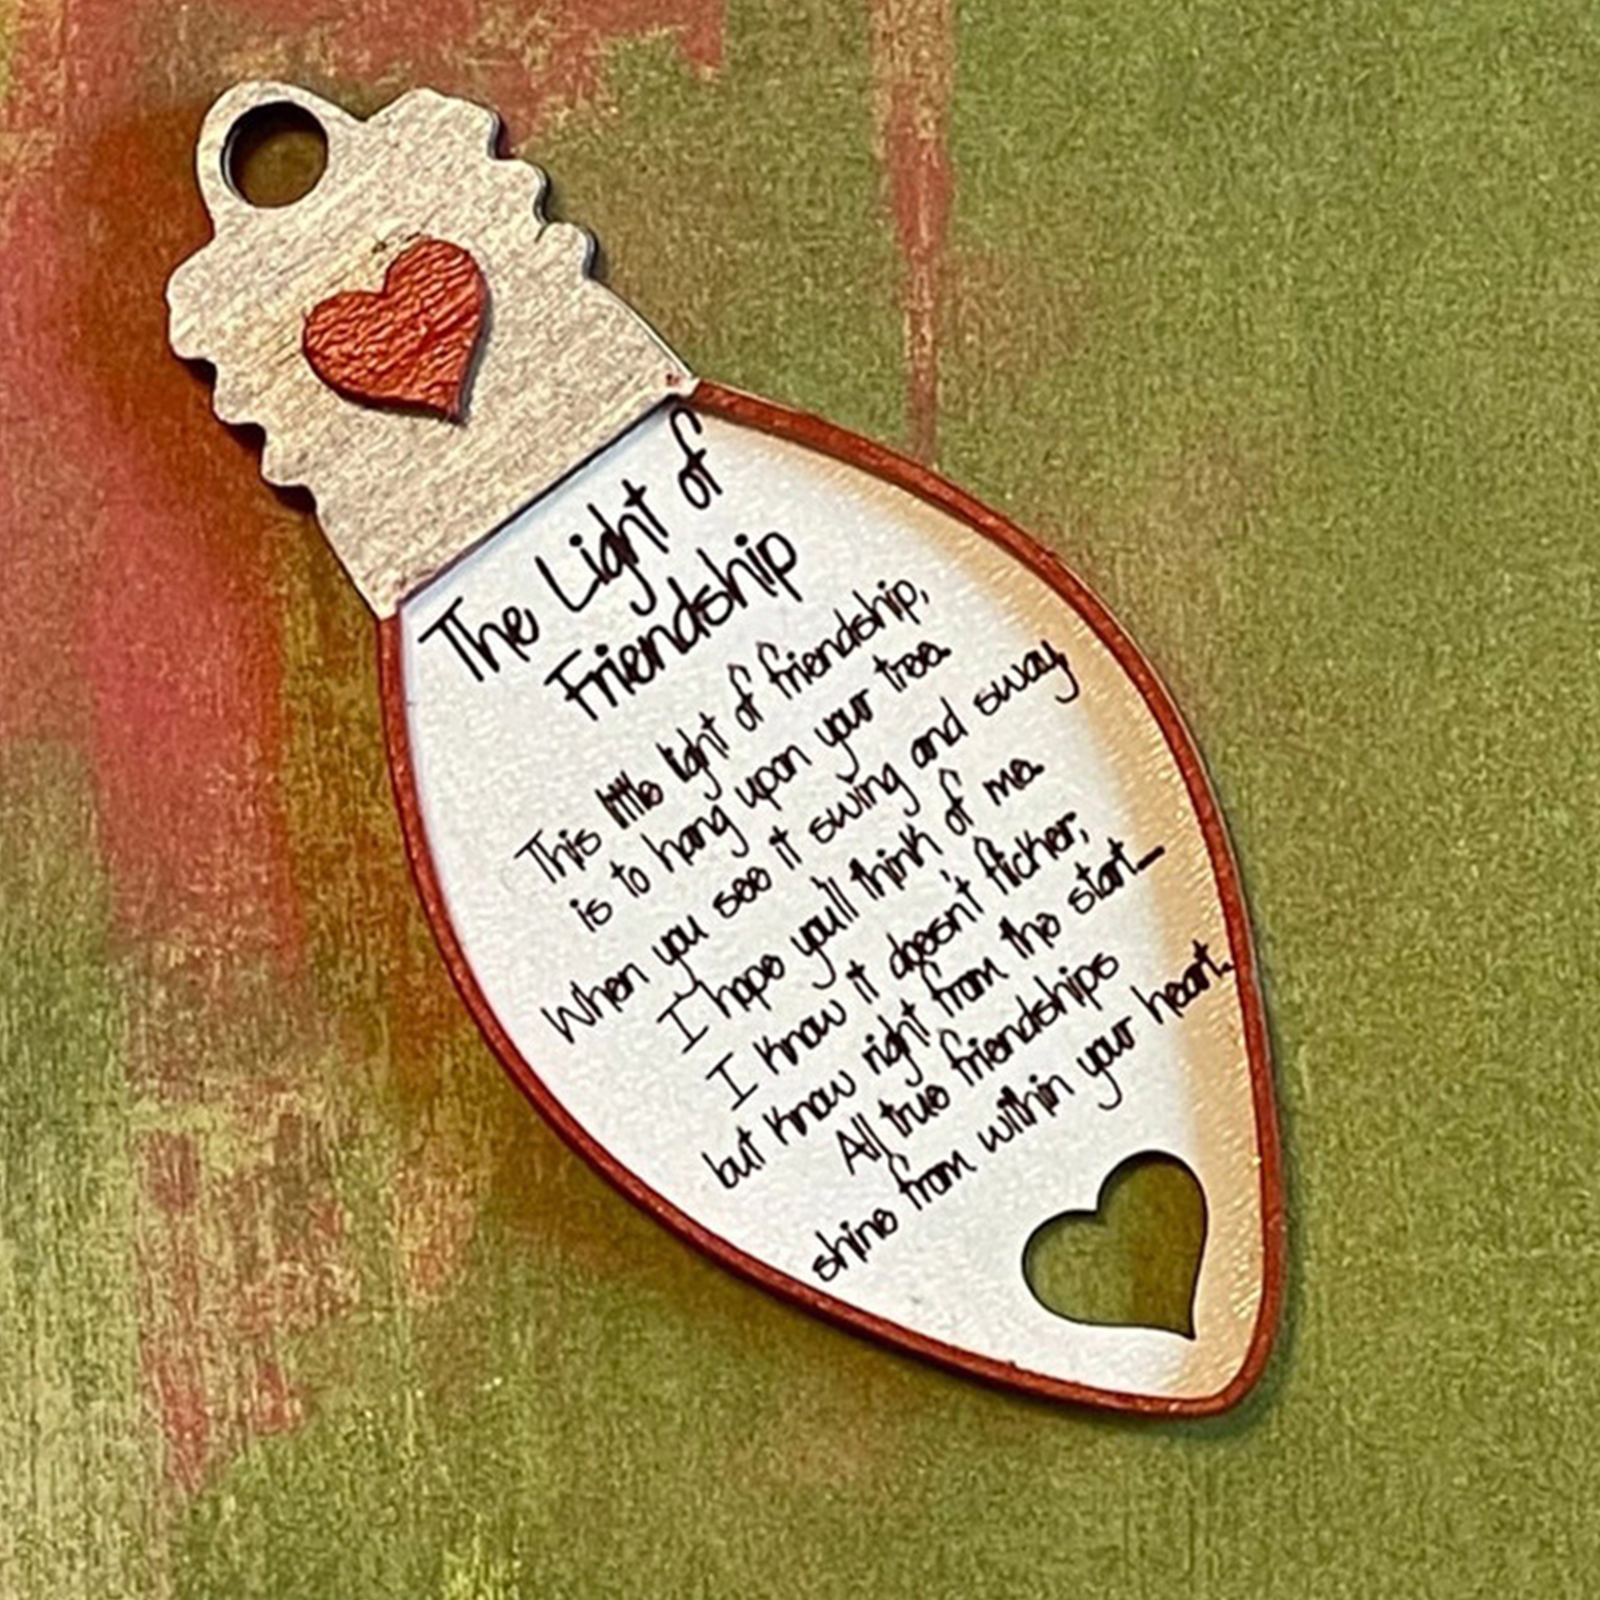 The Light of
Friendship
This little light of friendship,
is to hang upon your tree.
When you see it swing and sway,
I hope you'll think of me.
I know it doesn't flicker,
but know right from the start—
All true friendships
shine from within your heart.